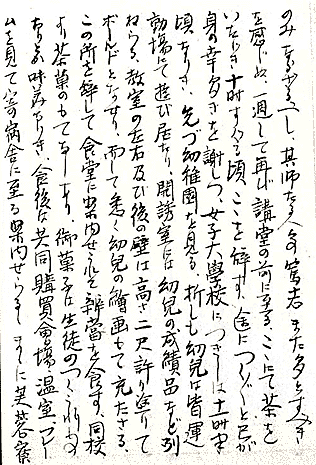 のみならざるべし、其師たる人々の篤志また多とすべき
を感じぬ、一過して再び講堂の前に至る、ここにて茶を
いたゞき十時すぐる頃ここを辞す、途につくづくと己が
身の幸多きを謝しつ、女子大學校につきしは十一時半
頃なりき、先づ幼稚園を見る、折しも幼兒は皆運
動場にて遊び居たり、開誘室には幼兒の成績品など列
ねらる、教室の左右及び後の壁は高さ二尺許り塗りて
ボールドとなせり、而して悉く幼兒の繪画もて充たさる、
この所を辞して食堂に案内せられ辨當を食す、同校
より茶菓のもてなしあり、御菓子は生徒のつくれるもの
なり、味美なりき、食後は共同購買會の場、温室、フレー
ムを見て、寄宿舎に至る案内せらる、まづ芙蓉寮